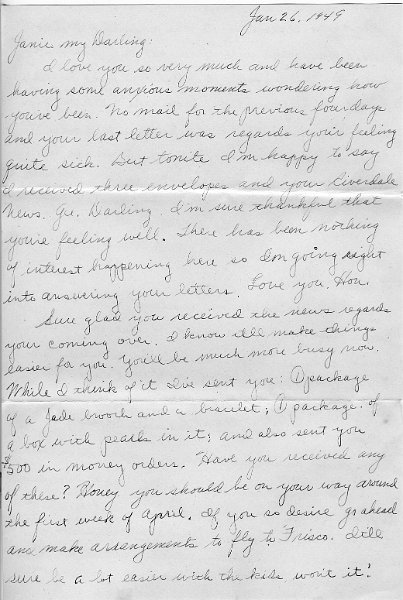 Jan 26, 1949
Janie my Darling:
I love you so very much and have been
having some anxious moments wondering how
you've been. No mail for the previous four days
and your last letter was regards your feeling
quite sick. But tonite I'm happy to say
I received three envelopes and your Riverdale
News. Ge. Darling I'm sure thankful that
you're feeling well. There has been nothing
of interest happening here so I'm going right
into answering your letters. Love you, Hon.
Sure glad you received the news regards
your coming over. I know it'll make things
easier for you. You'll be much more busy now.
While I think of it I've sent you: 1 package
of a Jade brooch and a bracelet; 1 package of
a box with pearls in it; and also sent you
$500 in money orders. Have you received any
of these? Honey you should be on your way around
the first week of April. If you so desire go ahead
and make arrangements to fly to Frisco. It'll
sure be a lot easier with the kids, won't it!